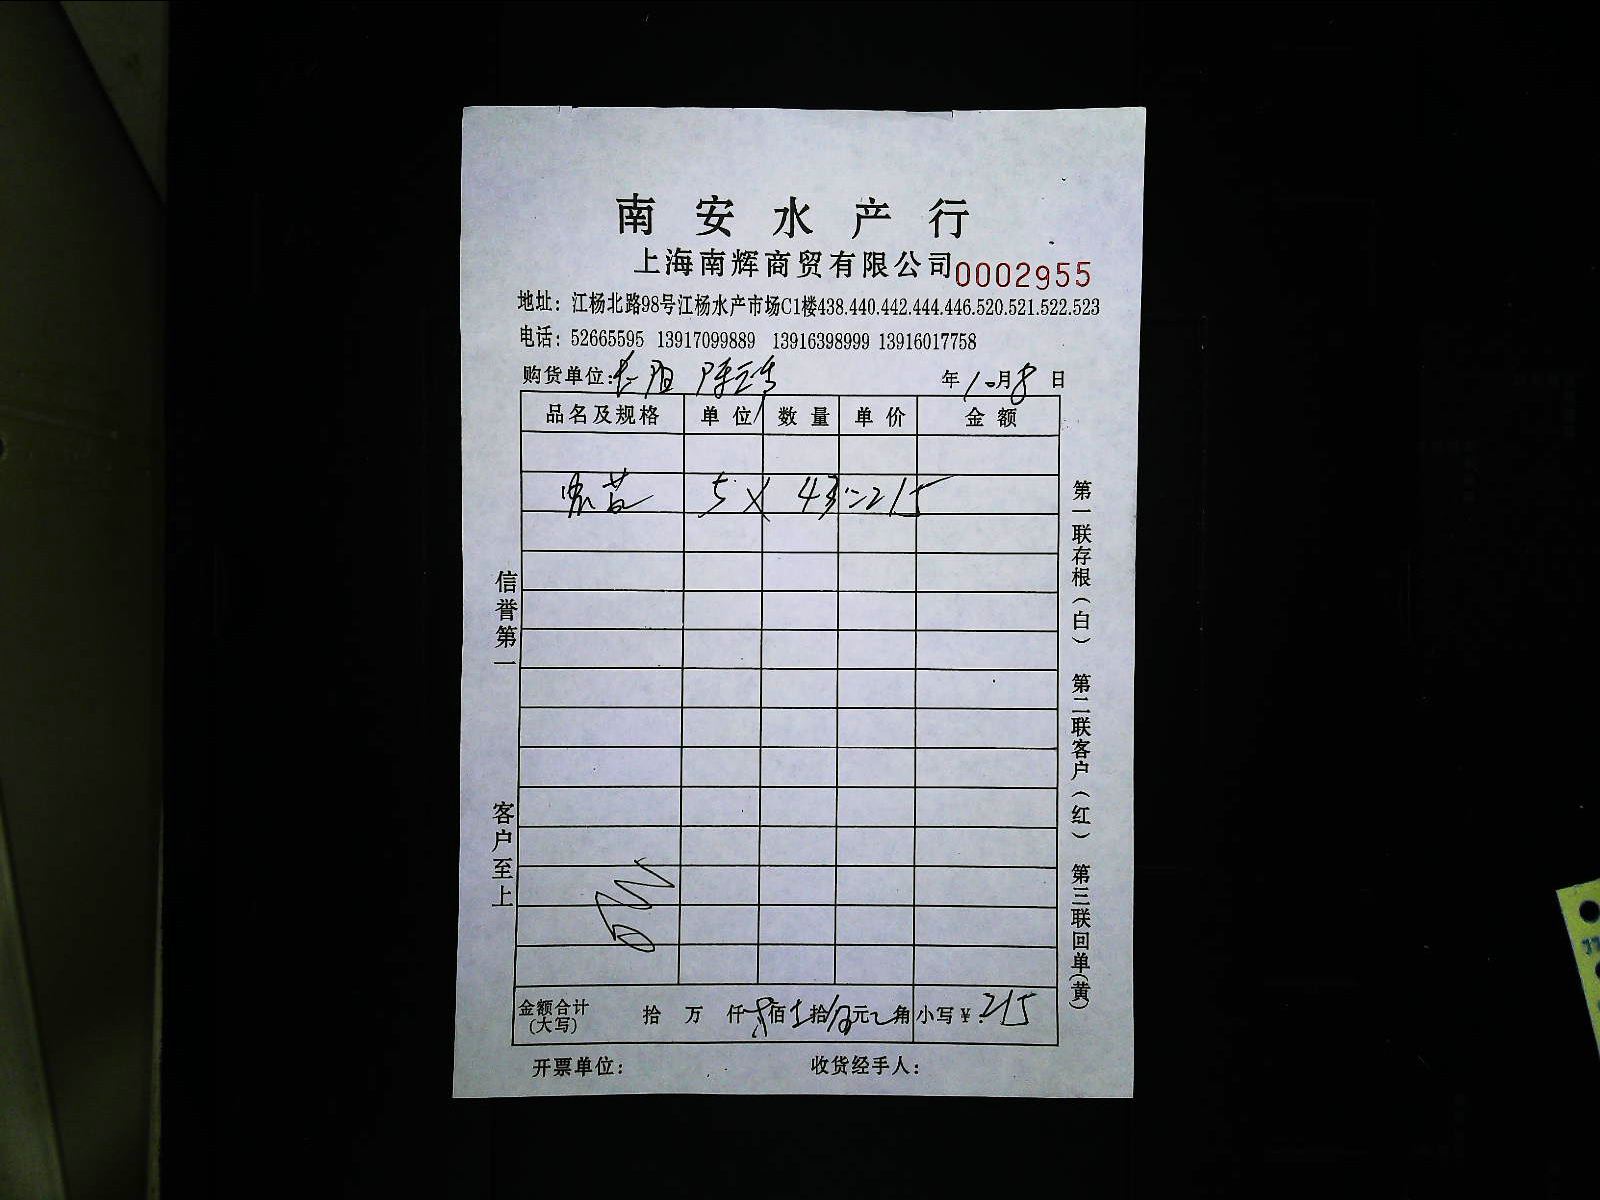 南安水产行
上海南辉商贸有限公司 0002955
地址：江杨北路98号江杨水产市场C1楼438.440.442.444.446.520.521.522.523
电话：52665595 13917099889 13916398999 13916017758
购货单位： 年 10月8日
品名及规格 单位 数量 单价 金额
5 X 43=215
信誉第一
客户至上
第一联存根（白） 第二联客户（红） 第三联回单（黄）
金额合计（大写） 拾 万 仟 佰 拾 元 角 小写￥：215
开票单位： 收货经手人：